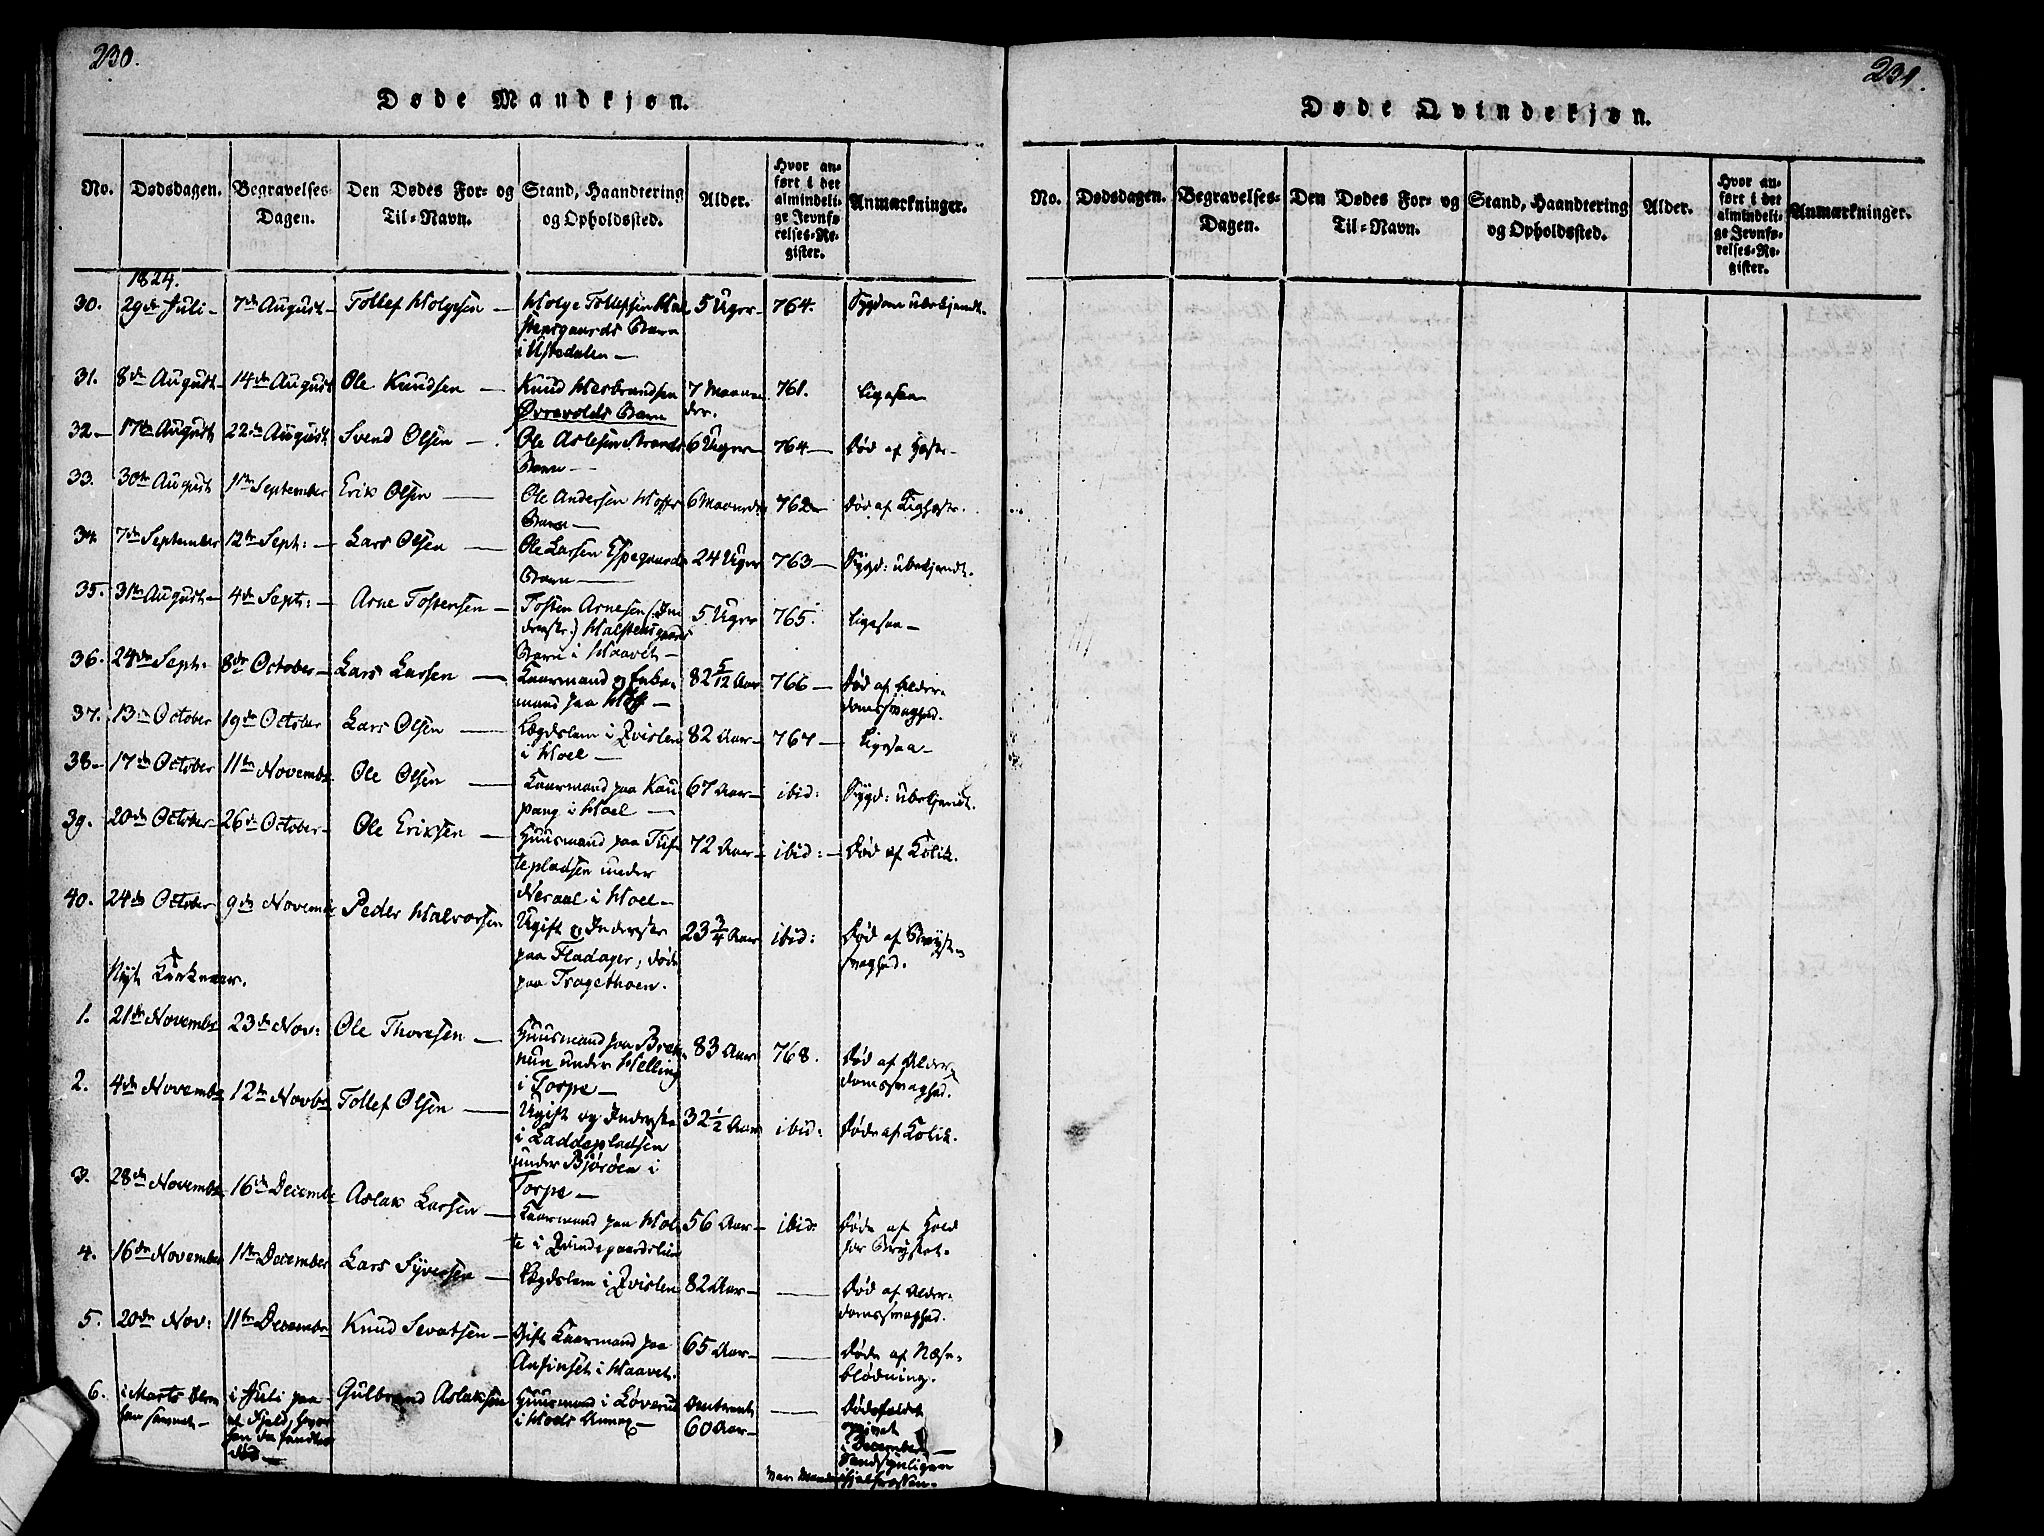 230.
Døde Mandkjøn.
No. Dødsdagen. Begravelses-Dagen. Den Dødes For- og Til-Navn. Stand, Haandtering og Opholdssted. Alder. Hvor anført i det almindelige Jevnførelses-Register. Anmærkninger.
1824.
30. 29de Juli 7de August Tollef Holgesen Holge Tollefsen Halstensgaards Barn i Ustedalen 5 Uger 764. Sygdom ubekjendt.
31. 8de August 14de August Ole Knudsen Knud Herbrandsen Øvrevolds Barn 7 Maaneder. 761. Ligesaa
32. 17de August 22de August Svend Olsen Ole Aslesen Barn 6 Uger 764 Død af
33. 30te August 11te September Erik Olsen Ole Andersen Barn 6 Maaneder 762 Død af Kighoste.
34. 7de September 12te Sept: Lars Olsen Ole Larsen Espegaards Barn 24 Uger 763 Sygd: ubekjendt.
35. 31te August 4de Sept: Arne Tostensen Tosten Arnesen (Inderste.) Halstensgaards Barn i Haavet 5 Uger 765. Ligesaa
36. 24de Sept: 8de October Lars Larsen Kaarmand og Enkemand paa Hoff 82 5/12 Aar 766 Død af Alderdomssvaghed.
37. 13de October 19de October Lars Olsen Lægdslem i Qvislen i Hoel 82 Aar 767 Ligesaa
38. 17de October 11te Novembr Ole Olsen Kaarmand paa Kaupang i Hoel 67 Aar ibid: Sygd: ubekjendt.
39. 20de October 26de October Ole Eriksen Huusmand paa Tuftepladsen under Neraal i Hoel 72 Aar ibid: Død af Kolik.
40. 24de October 9de Novembr Peder Halvorsen Ugift og Inderste paa Fladager, døde paa Tragethoen. 23 3/4 Aar ibid: Død af Brystsvaghed.
Nyt Kirkeaar.
1. 21de Novembr 23de Nov: Ole Thoresen Huusmand paa under Helling i Torpe 83 Aar 768. Død af Alderdomssvaghed.
2. 4de Novembr 12te Novbr Tollef Olsen Ugift og Inderste i Laddepladsen under Bjøröen i Torpe 32 1/2 Aar ibid: Døde af Kolik.
3. 28de Novembr 16de Decembr Aslak Larsen Kaarmand paa i Qvindegaardslien 56 Aar ibid: Døde af Hold for Brystet.
4. 16de November 11te December Lars Syversen Lægdslem i Qvislen 82 Aar Død af Alderdomssvaghed.
5. 20de Nov: 11te Decembr Knud Sevatsen Gift Kaarmand paa Ansinset i Haavet. 65 Aar Døde af Næseblødning.
6. i Marts i Juli paa et Fjeld, hvor han da fandtes død Gulbrand Aslaksen Huusmand i Løverud i Hoels Annex Omtrent 60 Aar Dødsfaldet opgivet i December
231.
Døde Qvindekjøn.
No. Dødsdagen. Begravelses-Dagen. Den Dødes For- og Til-Navn. Stand, Haandtering og Opholdssted. Alder. Hvor anført i det almindelige Jevnførelses-Register. Anmærkninger.